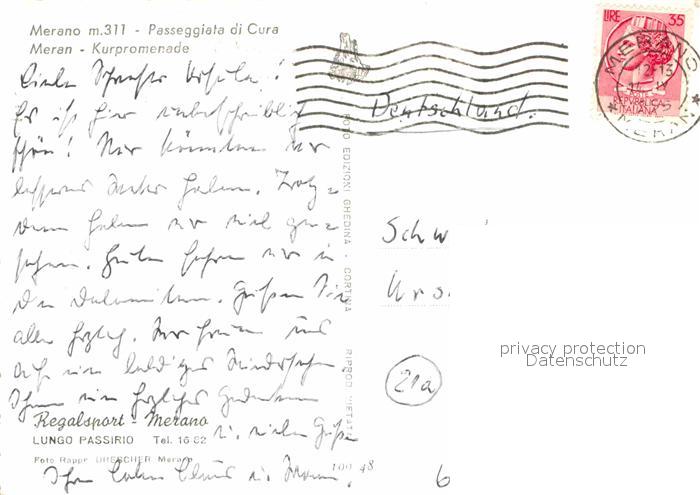 Merano m.311 - Passeggiata di Cura
Meran - Kurpromenade
Liebe Schwester Ursula!
Es ist hier unbeschreiblich
schön! Nur könnten wir
besseres Wetter haben. Trotz-
dem haben wir viel ge-
sehen. Heute fahren wir in
die Dolomiten. Grüßen Sie
alle herzlich. Wir freuen uns
auf ein baldiges Wiedersehen
Ihnen ein herzliches Gedenken
u. viele Grüße
Ihre
Regalsport - Merano
LUNGO PASSIRIO Tel. 16-82
Foto Rapp. DRESCHER Merano
FOTO EDIZIONI GHEDINA - CORTINA
RIPROD. VIETATA
100 48
LIRE 35
POSTE
REPVBBLICA
ITALIANA
MERANO
* MERAN *
Deutschland.
Schw
Urs.
21a
6
privacy protection
Datenschutz